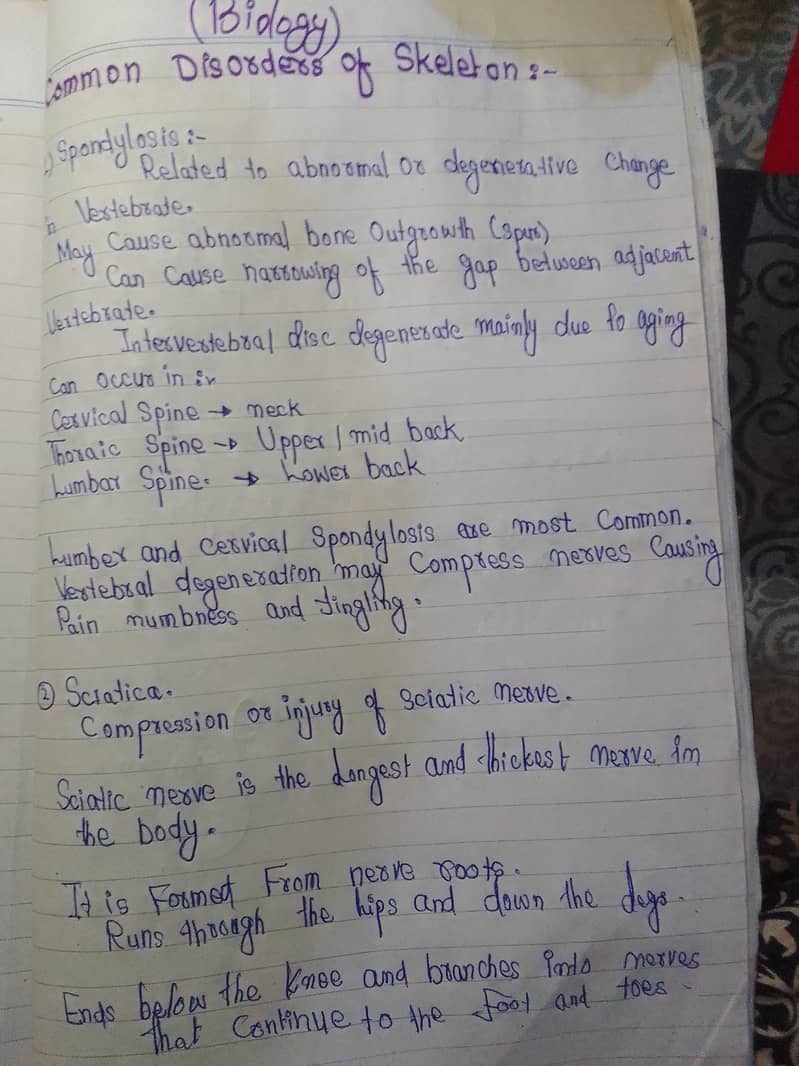 (Biology)
Common Disorders of Skeleton :-
1) Spondylosis :-
Related to abnormal or degenerative Change
in Vertebrate.
May Cause abnormal bone Outgrowth (Spur)
Can Cause narrowing of the gap between adjacent
Vertebrate.
Intervertebral disc degenerate mainly due to aging
Can occur in :-
Cervical Spine → neck
Thoraic Spine → Upper / mid back
Lumbar Spine. → Lower back
Lumber and Cervical Spondylosis are most Common.
Vertebral degeneration may Compress nerves Causing
Pain numbness and tingling.
② Sciatica.
Compression or injury of Sciatic nerve.
Sciatic nerve is the longest and thickest nerve in
the body.
It is Formed From nerve roots.
Runs through the hips and down the legs.
Ends below the Knee and branches into nerves
that Continue to the Foot and toes.